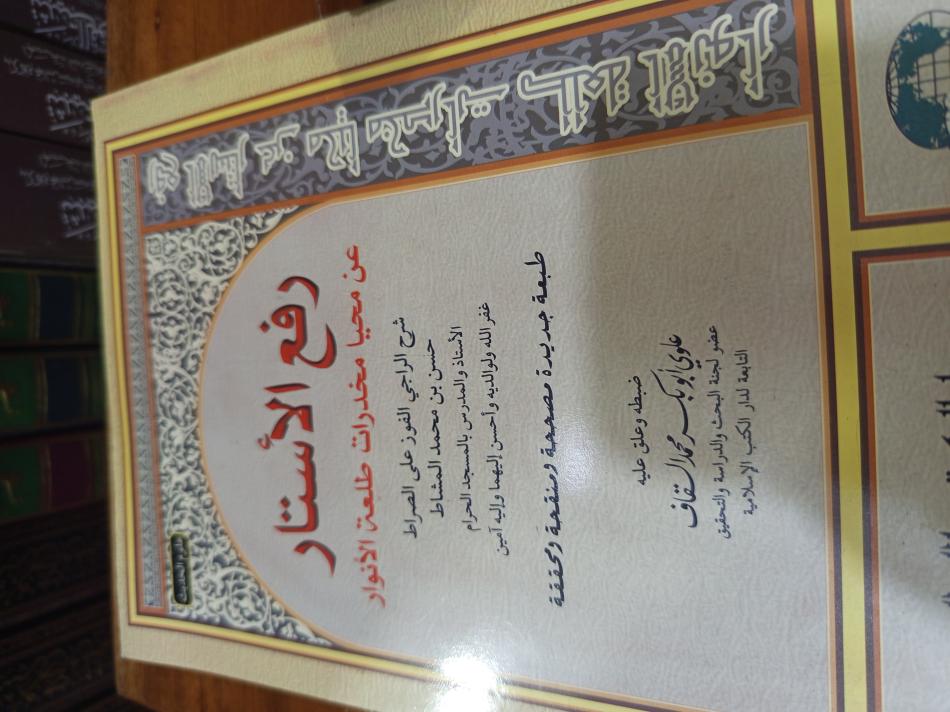 علوم الحديث
رفع الأستار
عن محيا مخدرات طلعة الأنوار
رفع الأستار
عن محيا مخدرات طلعة الأنوار
شرح الراجي الفوز على الصراط
حسن بن محمد المشاط
الأستاذ والمدرس بالمسجد الحرام
غفر الله ولوالديه وأحسن إليهما وإليه آمين
طبعة جديدة مصححة ومنقحة ومحققة
ضبطه وعلق عليه
علوي أبو بكر محمد السقاف
عضو لجنة البحث والدراسة والتحقيق
التابعة لدار الكتب الإسلامية